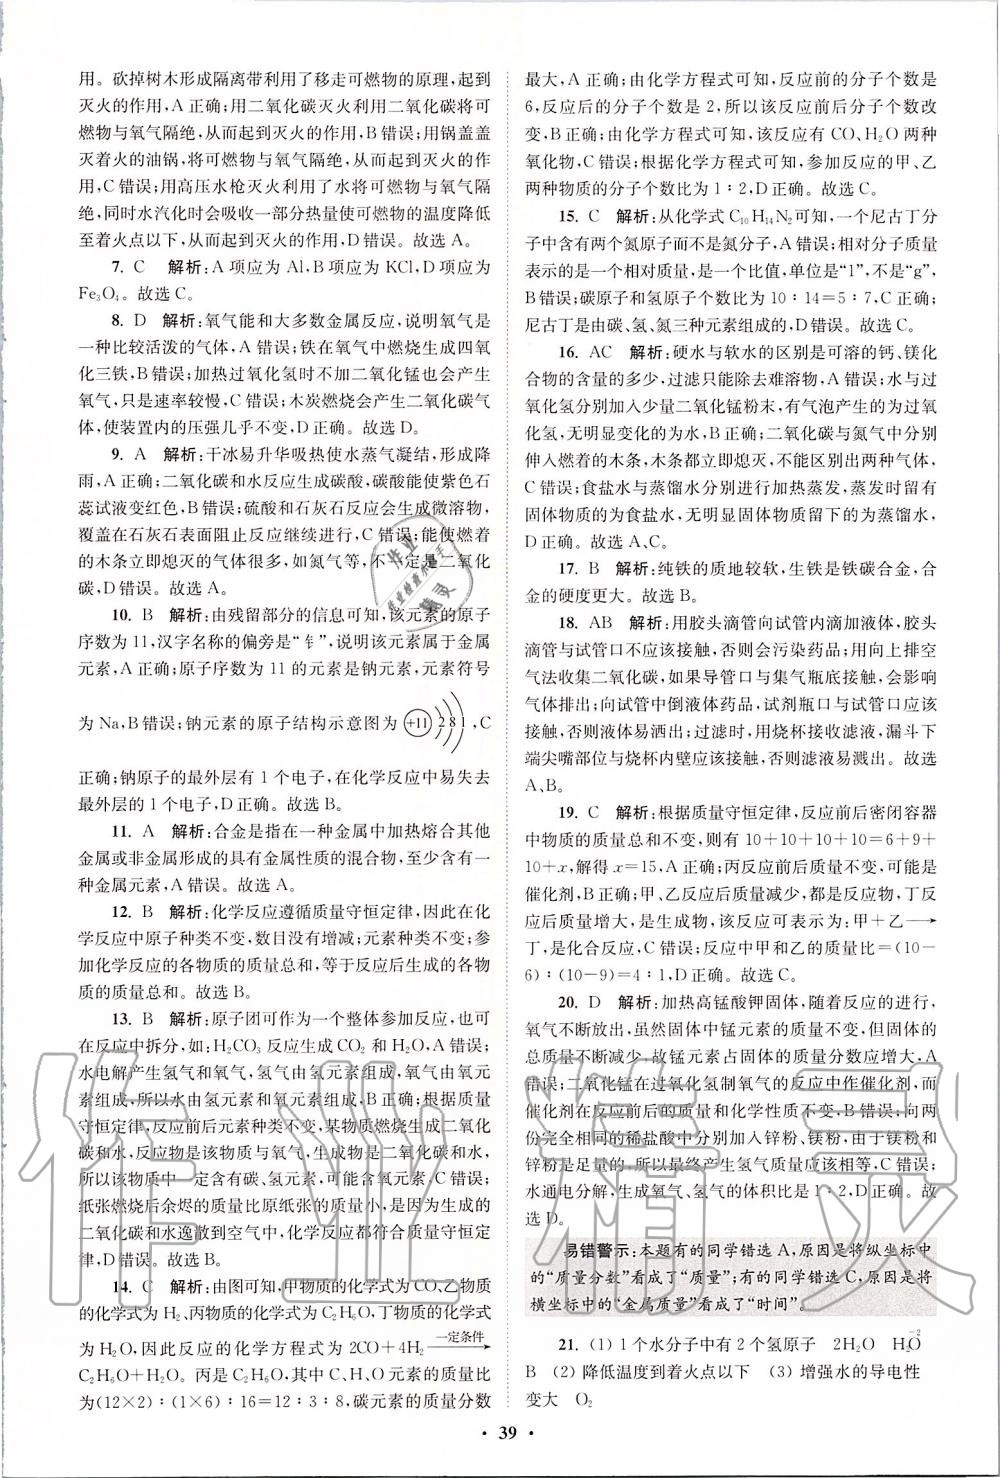 用。砍掉树木形成隔离带利用了移走可燃物的原理,起到
灭火的作用,A正确;用二氧化碳灭火利用二氧化碳将可
燃物与氧气隔绝,从而起到灭火的作用,B错误;用锅盖盖
灭着火的油锅,将可燃物与氧气隔绝,从而起到灭火的作
用,C错误;用高压水枪灭火利用了水将可燃物与氧气隔
绝,同时水汽化时会吸收一部分热量使可燃物的温度降低
至着火点以下,从而起到灭火的作用,D错误。故选A。
7. C 解析:A项应为Al,B项应为KCl,D项应为
Fe₃O₄。故选C。
8. D 解析:氧气能和大多数金属反应,说明氧气是
一种比较活泼的气体,A错误;铁在氧气中燃烧生成四氧
化三铁,B错误;加热过氧化氢时不加二氧化锰也会产生
氧气,只是速率较慢,C错误;木炭燃烧会产生二氧化碳气
体,使装置内的压强几乎不变,D正确。故选D。
9. A 解析:干冰易升华吸热使水蒸气凝结,形成降
雨,A正确;二氧化碳和水反应生成碳酸,碳酸能使紫色石
蕊试液变红色,B错误;硫酸和石灰石反应会生成微溶物,
覆盖在石灰石表面阻止反应继续进行,C错误;能使燃着
的木条立即熄灭的气体很多,如氮气等,不一定是二氧化
碳,D错误。故选A。
10. B 解析:由残留部分的信息可知,该元素的原子
序数为11,汉字名称的偏旁是“钅”,说明该元素属于金属
元素,A正确;原子序数为11的元素是钠元素,元素符号
为Na,B错误;钠元素的原子结构示意图为 +11 2 8 1 ,C
正确;钠原子的最外层有1个电子,在化学反应中易失去
最外层的1个电子,D正确。故选B。
11. A 解析:合金是指在一种金属中加热熔合其他
金属或非金属形成的具有金属性质的混合物,至少含有一
种金属元素,A错误。故选A。
12. B 解析:化学反应遵循质量守恒定律,因此在化
学反应中原子种类不变,数目没有增减;元素种类不变;参
加化学反应的各物质的质量总和,等于反应后生成的各物
质的质量总和。故选B。
13. B 解析:原子团可作为一个整体参加反应,也可
在反应中拆分,如:H₂CO₃反应生成CO₂和H₂O,A错误;
水电解产生氢气和氧气,氢气由氢元素组成,氧气由氧元
素组成,所以水由氢元素和氧元素组成,B正确;根据质量
守恒定律,反应前后元素种类不变,某物质燃烧生成二氧化
碳和水,反应物是该物质与氧气,生成物是二氧化碳和水,
所以该物质中一定含有碳、氢元素,可能含氧元素,C错误;
纸张燃烧后余烬的质量比原纸张的质量小,因为生成的
二氧化碳和水逸散到空气中,化学反应都符合质量守恒定
律,D错误。故选B。
14. C 解析:由图可知,甲物质的化学式为CO,乙物质
的化学式为H₂,丙物质的化学式为C₂H₆O,丁物质的化学式
为H₂O,因此反应的化学方程式为2CO+4H₂ 一定条件→
C₂H₆O+H₂O。丙是C₂H₆O,其中C、H、O元素的质量比
为(12×2):(1×6):16=12:3:8,碳元素的质量分数
最大,A正确;由化学方程式可知,反应前的分子个数是
6,反应后的分子个数是2,所以该反应前后分子个数改
变,B正确;由化学方程式可知,该反应有CO、H₂O两种
氧化物,C错误;根据化学方程式可知,参加反应的甲、乙
两种物质的分子个数比为1:2,D正确。故选C。
15. C 解析:从化学式C₁₀H₁₄N₂可知,一个尼古丁分
子中含有两个氮原子而不是氮分子,A错误;相对分子质量
表示的是一个相对质量,是一个比值,单位是“1”,不是“g”,
B错误;碳原子和氢原子个数比为10:14=5:7,C正确;
尼古丁是由碳、氢、氮三种元素组成的,D错误。故选C。
16. AC 解析:硬水与软水的区别是可溶的钙、镁化
合物的含量的多少,过滤只能除去难溶物,A错误;水与过
氧化氢分别加入少量二氧化锰粉末,有气泡产生的为过氧
化氢,无明显变化的为水,B正确;二氧化碳与氮气中分别
伸入燃着的木条,木条都立即熄灭,不能区别出两种气体,
C错误;食盐水与蒸馏水分别进行加热蒸发,蒸发时留有
固体物质的为食盐水,无明显固体物质的为蒸馏水,
D正确。故选A、C。
17. B 解析:纯铁的质地较软,生铁是铁碳合金,合
金的硬度更大。故选B。
18. AB 解析:用胶头滴管向试管内滴加液体,胶头
滴管与试管口不应该接触,否则会污染药品;用向上排空
气法收集二氧化碳,如果导管口与集气瓶底接触,会影响
气体排出;向试管中倾倒液体药品,试剂瓶口与试管口应该
接触,否则液体易洒出;过滤时,用烧杯接收滤液,漏斗下
端尖嘴部位与烧杯内壁应该接触,否则滤液易溅出。故选
A、B。
19. C 解析:根据质量守恒定律,反应前后密闭容器
中物质的质量总和不变,则有10+10+10+10=6+9+
10+x,解得x=15,A正确;丙反应前后质量不变,可能是
催化剂,B正确;甲、乙反应后质量减少,都是反应物,丁反
应后质量增大,是生成物,该反应可表示为:甲+乙→
丁,是化合反应,C错误;反应中甲和乙的质量比=(10-
6):(10-9)=4:1,D正确。故选C。
20. D 解析:加热高锰酸钾固体,随着反应的进行,
氧气不断放出,虽然固体中锰元素的质量不变,但固体的
总质量不断减少,故锰元素占固体的质量分数应增大,A
错误;二氧化锰在过氧化氢制氧气的反应中作催化剂,而
催化剂在反应前后质量和化学性质不变,B错误;向两
份完全相同的稀盐酸中分别加入锌粉、镁粉,由于镁粉和
锌粉是足量的,所以最终产生氢气质量应该相等,C错误;
水通电分解,生成氧气、氢气的体积比是1:2,D正确。故
选D。
易错警示:本题有的同学错选A,原因是将纵坐标中
的“质量分数”看成了“质量”;有的同学错选C,原因是将
横坐标中的“金属质量”看成了“时间”。
21. (1) 1个水分子中有2个氢原子 2H₂O H₂O⁻²
B (2) 降低温度到着火点以下 (3) 增强水的导电性
变大 O₂
• 39 •
作业精灵